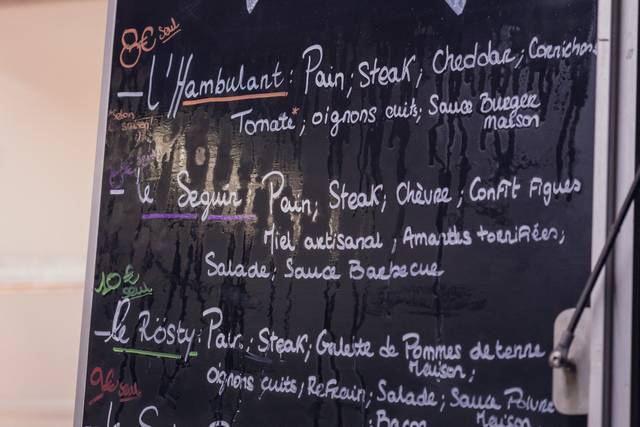 8€ seul
- L'Hambulant : Pain ; Steak ; Cheddar ; Cornichons
Tomate* ; oignons cuits ; Sauce Burger
maison
*selon saison
- Le Seguin Pain ; Steak ; Chèvre ; Confit Figues
Miel artisanal ; Amandes torrifiées ;
Salade ; Sauce Barbecue
10€ seul
- Le Rösty : Pain ; Steak ; Galette de Pommes de terre
Maison ;
oignons cuits ; Salade ; Sauce Poivre
Maison
9€ seul
Bacon